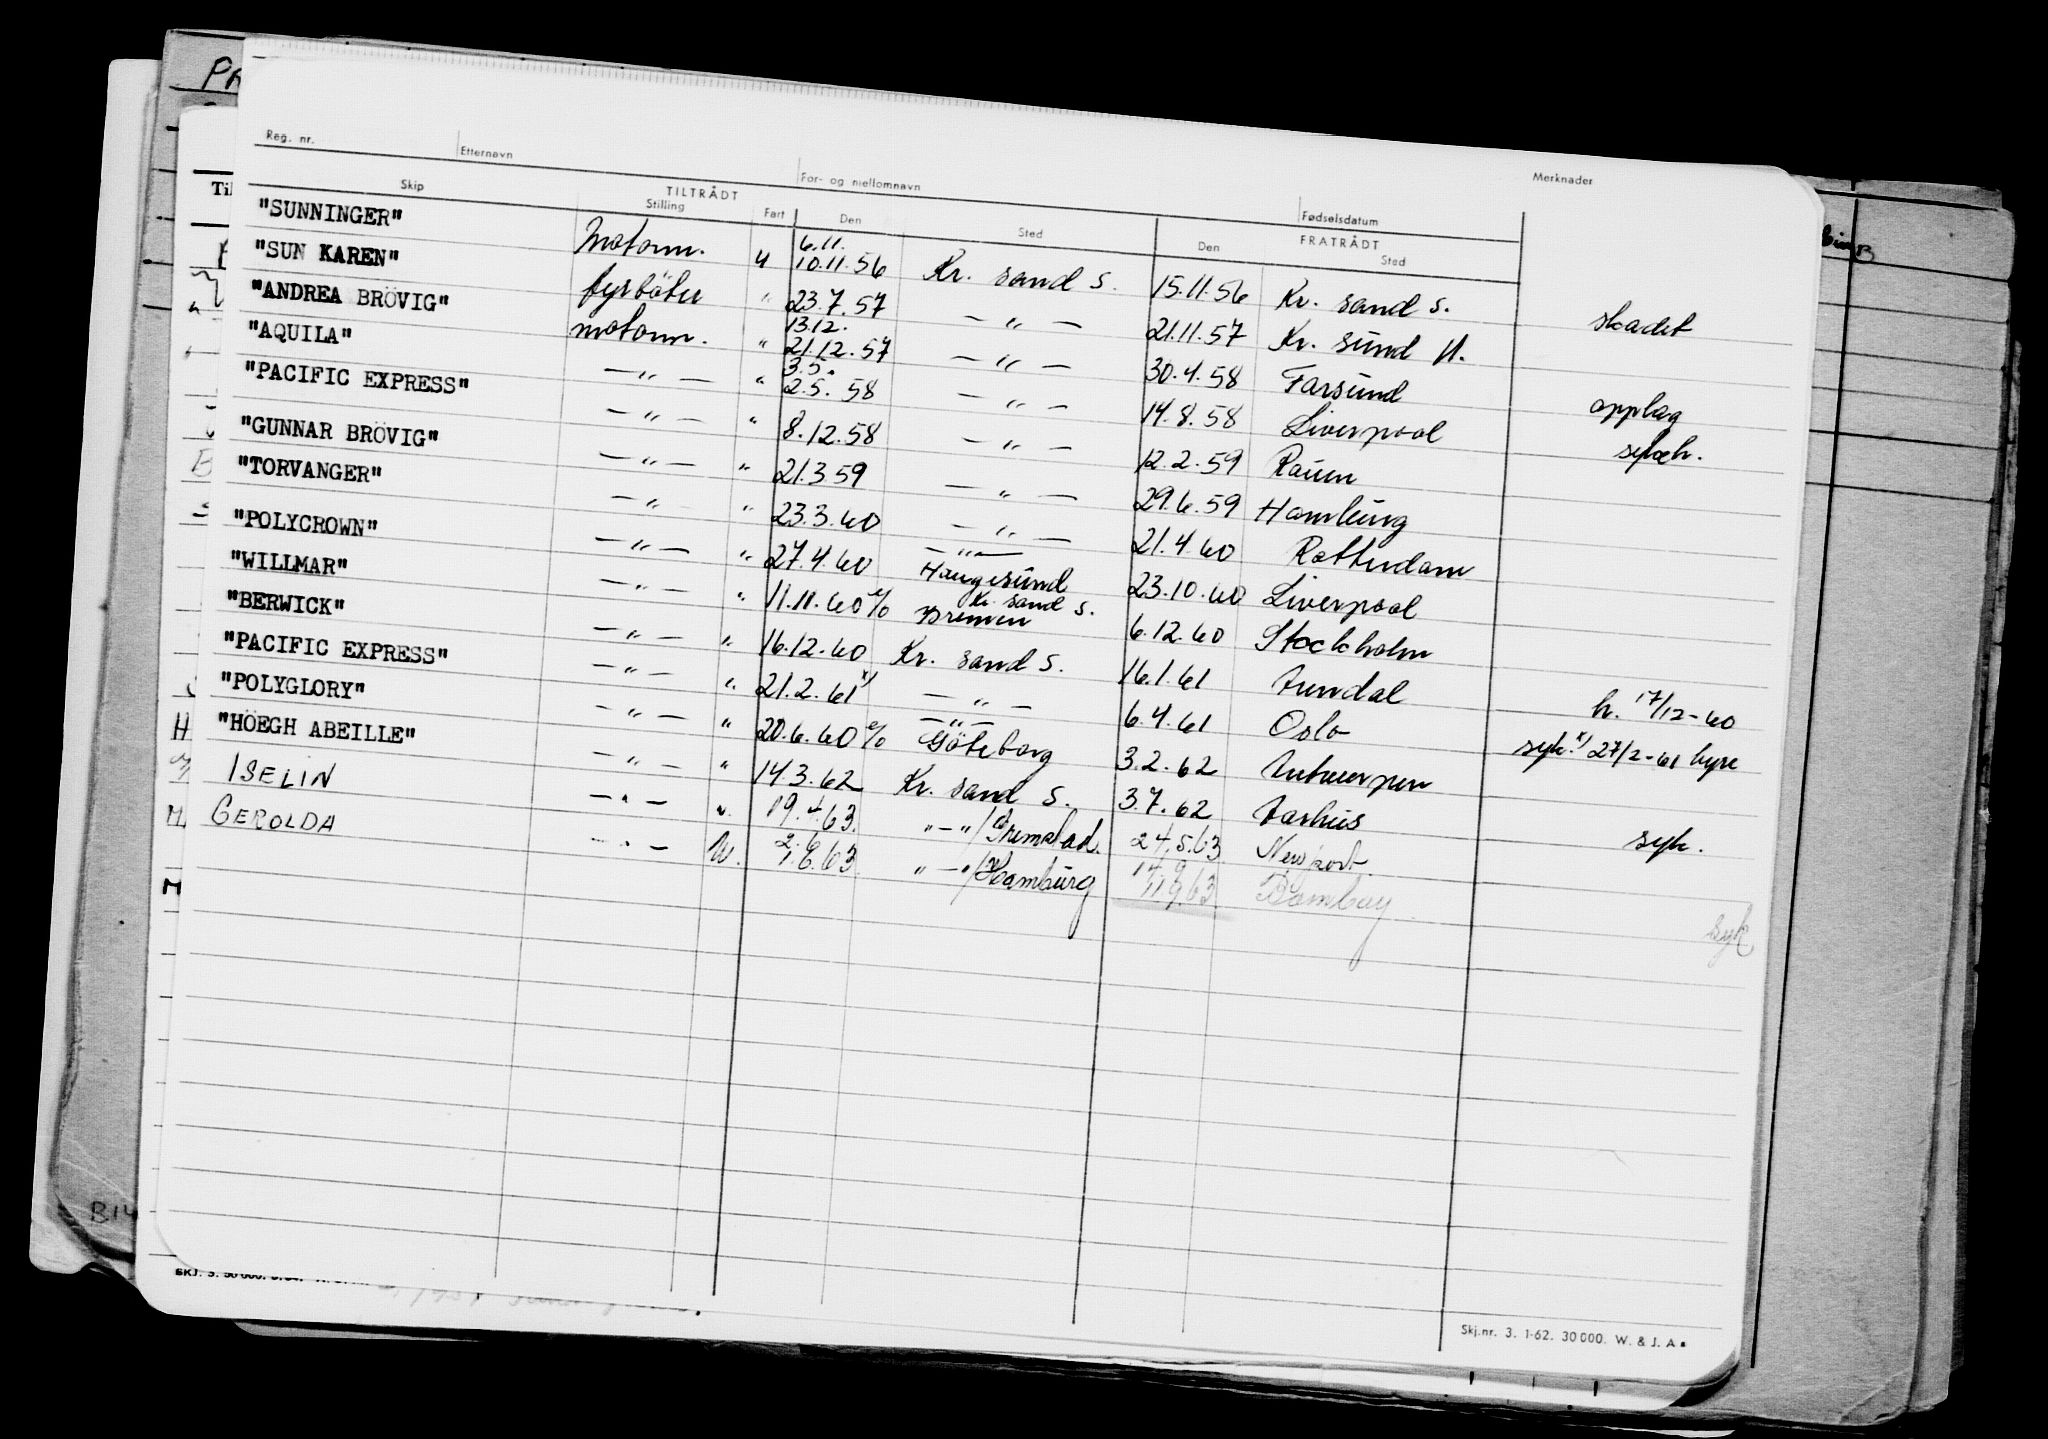 PA
Reg. nr. Etternavn For- og mellomnavn Fødselsdatum Merknader
Skip TILTRÅDT FRATRÅDT
Stilling Fart Den Sted Den Sted
"SUNNINGER" Motorm. u 6.11. 10.11.56 Kr. sand S. 15.11.56 Kr. sand S. skadet
"SUN KAREN" fyrbøter " 23.7.57 — " — 21.11.57 Kr. sund N.
"ANDREA BRÖVIG" motorm. " 13.12. 21.12.57 — " — 30.4.58 Farsund opplag
"AQUILA" — " — " 3.5. 2.5.58 — " — 14.8.58 Liverpool sykeh.
"PACIFIC EXPRESS" — " — " 8.12.58 — " — 12.2.59 Rouen
"GUNNAR BRÖVIG" — " — " 21.3.59 — " — 29.6.59 Hamburg
"TORVANGER" — " " 23.3.60 — " — 21.4.60 Rotterdam
"POLYCROWN" — " — " 27.4.60 — " — Haugesund 23.10.60 Liverpool
"WILLMAR" — " — " 11.11.60 e/o Kr. sand S. Bremen 6.12.60 Stockholm
"BERWICK" — " — " 16.12.60 Kr. sand S. 16.1.61 Arendal h. 17/12-60
"PACIFIC EXPRESS" — " — " 21.2.61 x) — " — 6.4.61 Oslo syk. x) 27/2-61 hyre
"POLYGLORY" — " — " 20.6.60 e/o — " — Göteborg 3.2.62 Antwerpen
"HÖEGH ABEILLE" — " — " 14.3.62 Kr. sand S. 3.7.62 Aarhus syk.
ISELIN — " — u. 19.4.63. " — "/Grimstad. 24.5.63 Newport.
GEROLDA — " — U. 2.6 1.6.63. " — "/Hamburg 14.9 11.9.63 Bombay syk
B14
Skj.nr. 3. 1-62. 30 000. W. & J. A